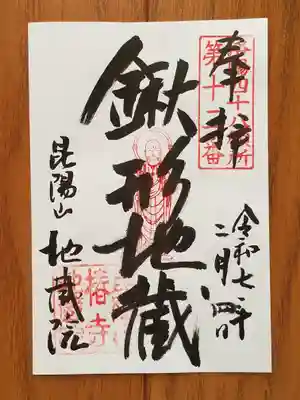 奉拝
第十番
令和七年
二月四日
鍬形地蔵
昆陽山 地蔵院
椿寺